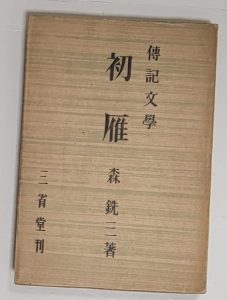 傳記文學
初雁
森銑三著
三省堂刊